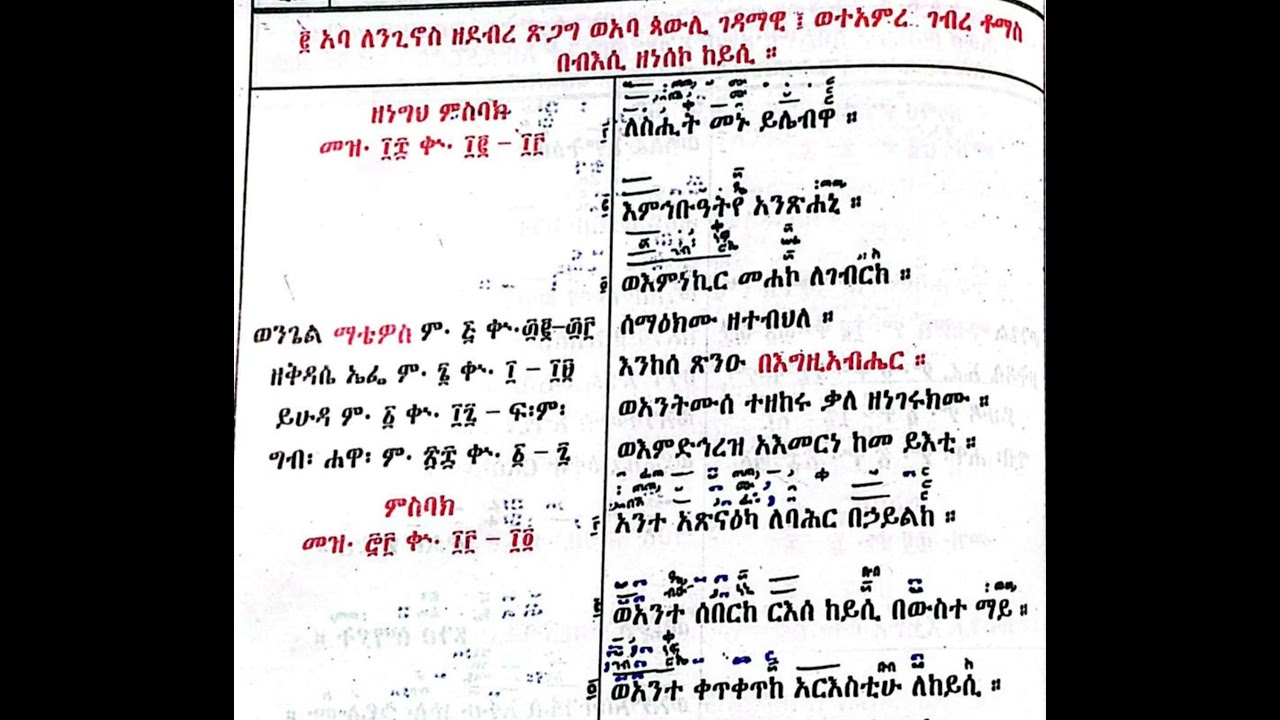 ፪ አባ ለንጊኖስ ዘደብረ ጽጋግ ወአባ ጳውሊ ገዳማዊ ፤ ወተአምረ ገብረ ቶማስ
በብእሲ ዘነሰኮ ከይሲ ።
ዘነግህ ምስባክ
መዝ. ፲፰ ቍ. ፲፪ – ፲፫
ለስሒት መኑ ይሌብዋ ።
እምኅቡዓትየ አንጽሐኒ ።
ወእምነኪር መሐኮ ለገብርከ ።
ወንጌል ማቴዎስ ም. ፭ ቍ.፴፪–፴፫ ሰማዕክሙ ዘተብህለ ።
ዘቅዳሴ ኤፌ ም. ፮ ቍ. ፲ – ፲፱ እንከሰ ጽንዑ በእግዚአብሔር ።
ይሁዳ ም. ፩ ቍ. ፲፯ – ፍ፡ም፡ ወአንትሙሰ ተዘከሩ ቃለ ዘነገሩክሙ ።
ግብ፡ ሐዋ፡ ም. ፳፰ ቍ. ፩ – ፯ ወእምድኅረዝ አእመርነ ከመ ይእቲ ።
ምስባክ
መዝ. ፸፫ ቍ. ፲፫ – ፲፬
አንተ አጽናዕካ ለባሕር በኃይልከ ።
ወአንተ ሰበርከ ርእሰ ከይሲ በውስተ ማይ ።
ወአንተ ቀጥቀጥከ አርእስቲሁ ለከይሲ ።